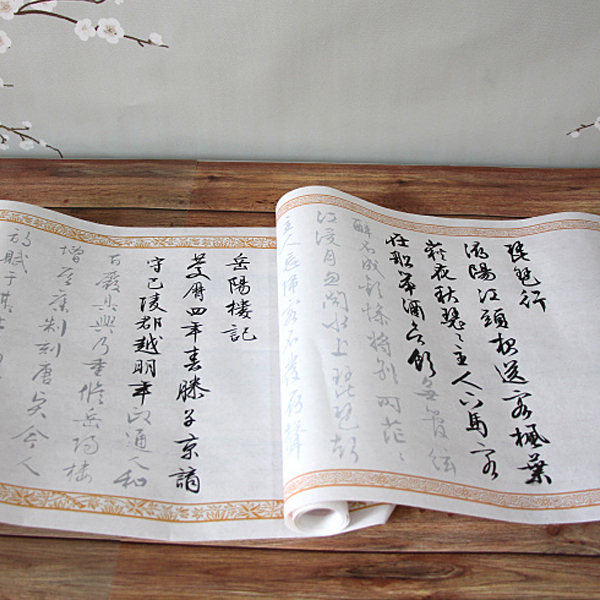 琵琶行
潯陽江頭夜送客楓葉
荻花秋瑟〻主人下馬客
在船举酒欲飲無管絃
醉不成歡惨将别別时茫〻
江浸月忽聞水上琵琶聲
主人忘歸客不發尋聲
岳陽樓記
慶曆四年春滕子京謫
守巴陵郡越明年政通人和
百廢具興乃重修岳陽樓
增其舊制刻唐賢今人
詩賦于其上